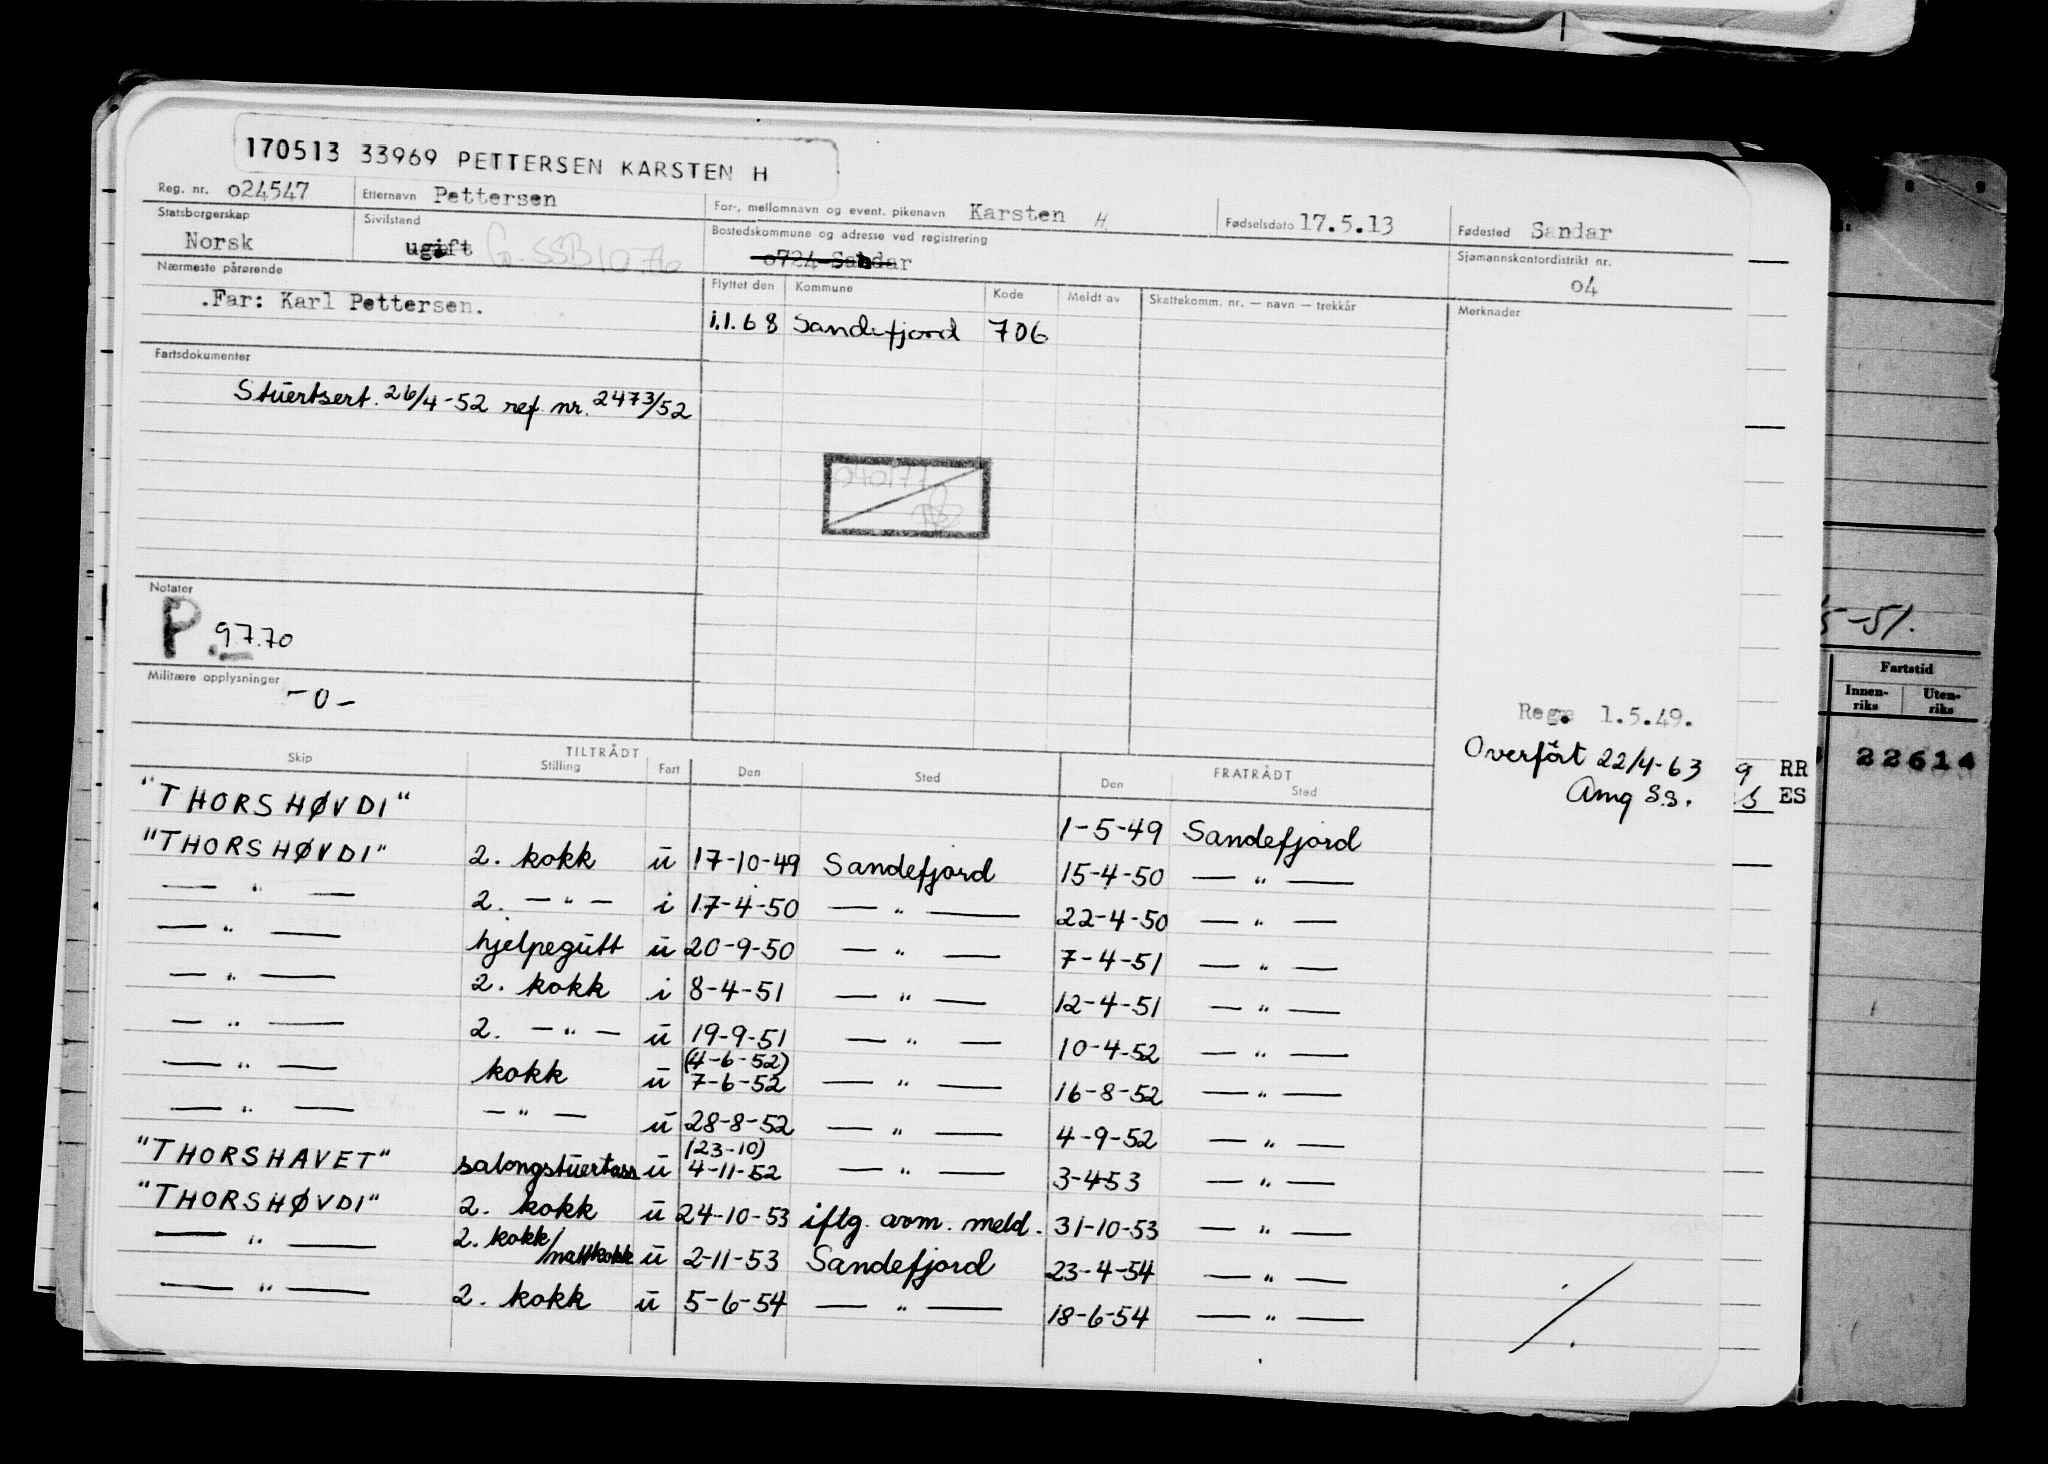 170513 33969 PETTERSEN KARSTEN H
Reg. nr. o24547 Etternavn Pettersen For-, mellomnavn og event. pikenavn Karsten H. Fødselsdato 17.5.13 Fødested Sandar
Statsborgerskap Norsk Sivilstand ugift G. SSB 10.76 Bostedskommune og adresse ved registrering o724 Sandar Sjømannskontordistrikt nr. o4
Nærmeste pårørende Flyttet den Kommune Kode Meldt av Skattekomm. nr. — navn — trekkår Merknader
.Far: Karl Pettersen. 1.1.68 Sandefjord 706
Fartsdokumenter
Stuertsert. 26/4-52 ref. nr. 2473/52
040177
Notater
P. 9.7.70
Militære opplysninger
-0-
Reg. 1.5.49.
Overført 22/4-63
TILTRÅDT FRATRÅDT
Skip Stilling Fart Den Sted Den Sted
"THORSHØVDI" 1-5-49 Sandefjord
"THORSHØVDI" 2. kokk u 17-10-49 Sandefjord 15-4-50 — " —
— " — 2. — " — i 17-4-50 — " — 22-4-50 — " —
— " — hjelpegutt u 20-9-50 — " — 7-4-51 — " —
— " — 2. kokk i 8-4-51 — " — 12-4-51 — " —
— " — 2. — " — u 19-9-51 — " — 10-4-52 — " —
— " — kokk u (4-6-52) 7-6-52 — " — 16-8-52 — " —
— " — — " — u 28-8-52 — " — 4-9-52 — " —
"THORSHAVET" salongstuertass u (23-10) 4-11-52 — " — 3-453 — " —
"THORSHØVDI" 2. kokk u 24-10-53 iflg. avm. meld. 31-10-53 — " —
— " — 2. kokk/nattkokk u 2-11-53 Sandefjord 23-4-54 — " —
— " — 2. kokk u 5-6-54 — " — 18-6-54 — " —
5-51.
Fartstid
Innen-riks Uten-riks
22614
RR
ES